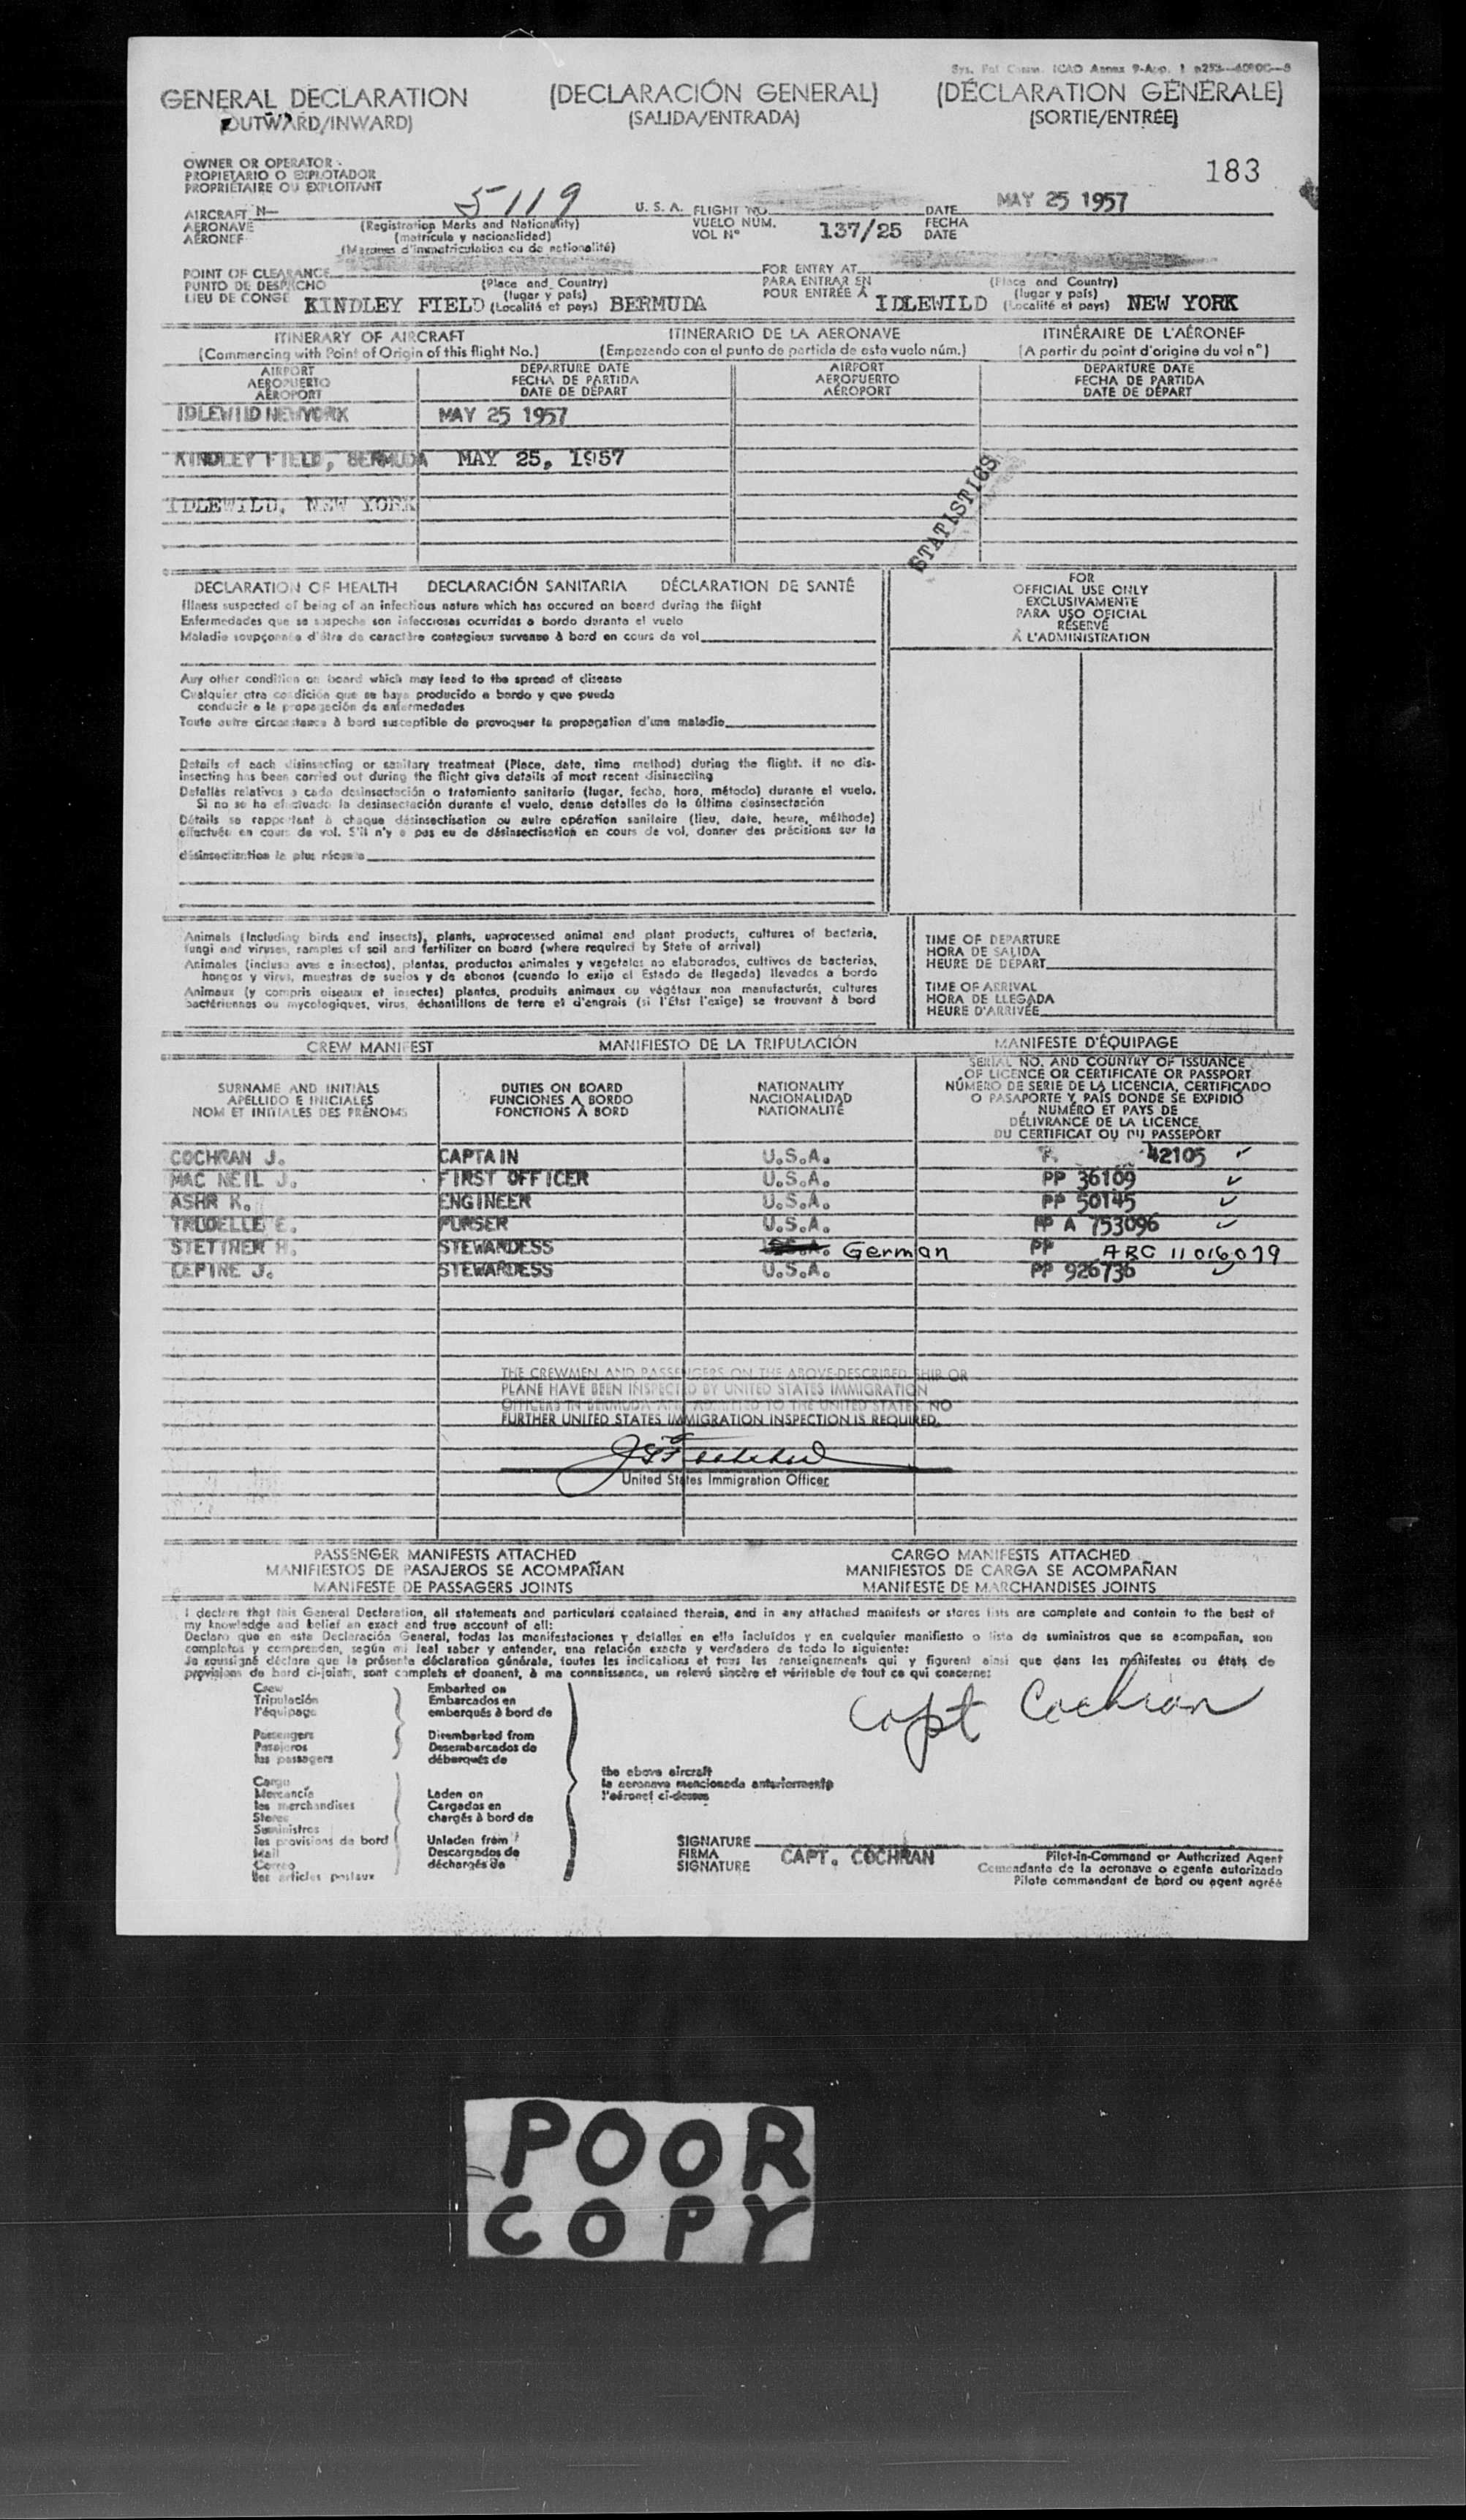 Sys. Pat Comm. ICAO Annex 9-App. 1
GENERAL DECLARATION (DECLARACIÓN GENERAL) (DÉCLARATION GÉNÉRALE)
(OUTWARD/INWARD) (SALIDA/ENTRADA) (SORTIE/ENTRÉE)
183
OWNER OR OPERATOR
PROPIETARIO O EXPLOTADOR
PROPRIÉTAIRE OU EXPLOITANT
AIRCRAFT N— 5119 U. S. A. FLIGHT NO. DATE MAY 25 1957
AERONAVE (Registration Marks and Nationality) VUELO NÚM. 137/25 FECHA
AÉRONEF (matrícula y nacionalidad) VOL N° DATE
(Marques d'immatriculation ou de nationalité)
POINT OF CLEARANCE (Place and Country) FOR ENTRY AT (Place and Country)
PUNTO DE DESPACHO (lugar y país) PARA ENTRAR EN (lugar y país)
LIEU DE CONGE KINDLEY FIELD (Localité et pays) BERMUDA POUR ENTRÉE À IDLEWILD (Localité et pays) NEW YORK
ITINERARY OF AIRCRAFT ITINERARIO DE LA AERONAVE ITINÉRAIRE DE L'AÉRONEF
(Commencing with Point of Origin of this flight No.) (Empezando con el punto de partida de este vuelo núm.) (A partir du point d'origine du vol n°)
AIRPORT DEPARTURE DATE AIRPORT DEPARTURE DATE
AEROPUERTO FECHA DE PARTIDA AEROPUERTO FECHA DE PARTIDA
AÉROPORT DATE DE DÉPART AÉROPORT DATE DE DÉPART
IDLEWILD NEWYORK MAY 25 1957
KINDLEY FIELD, BERMUDA MAY 25, 1957
IDLEWILD, NEW YORK
STATISTICS
DECLARATION OF HEALTH DECLARACIÓN SANITARIA DÉCLARATION DE SANTÉ
Illness suspected of being of an infectious nature which has occured on board during the flight
Enfermedades que se sospeche son infecciosas ocurridas a bordo durante el vuelo
Maladie soupçonnée d'être de caractère contagieux survenue à bord en cours de vol
Any other condition on board which may lead to the spread of disease
Cualquier otra condición que se haya producido a bordo y que pueda
conducir a la propagación de enfermedades
Toute autre circonstance à bord susceptible de provoquer la propagation d'une maladie
Details of each disinsecting or sanitary treatment (Place, date, time method) during the flight. If no dis-
insecting has been carried out during the flight give details of most recent disinsecting
Detalles relativos a cada desinsectación o tratamiento sanitario (lugar, fecha, hora, método) durante el vuelo.
Si no se ha efectuado la desinsectación durante el vuelo, dense detalles de la última desinsectación
Détails se rapportant à chaque désinsectisation ou autre opération sanitaire (lieu, date, heure, méthode)
effectuée en cours de vol. S'il n'y a pas eu de désinsectisation en cours de vol, donner des précisions sur la
désinsectisation la plus récente
FOR
OFFICIAL USE ONLY
EXCLUSIVAMENTE
PARA USO OFICIAL
RÉSERVÉ
À L'ADMINISTRATION
Animals (Including birds and insects), plants, unprocessed animal and plant products, cultures of bacteria,
fungi and viruses, samples of soil and fertilizer on board (where required by State of arrival)
Animales (incluso aves e insectos), plantas, productos animales y vegetales no elaborados, cultivos de bacterias,
hongos y virus, muestras de suelos y de abonos (cuando lo exija el Estado de llegada) llevados a bordo
Animaux (y compris oiseaux et insectes) plantes, produits animaux ou végétaux non manufacturés, cultures
bactériennes ou mycologiques, virus, échantillons de terre et d'engrais (si l'État l'exige) se trouvant à bord
TIME OF DEPARTURE
HORA DE SALIDA
HEURE DE DÉPART
TIME OF ARRIVAL
HORA DE LLEGADA
HEURE D'ARRIVÉE
CREW MANIFEST MANIFIESTO DE LA TRIPULACIÓN MANIFESTE D'ÉQUIPAGE
SURNAME AND INITIALS
APELLIDO E INICIALES
NOM ET INITIALES DES PRÉNOMS
DUTIES ON BOARD
FUNCIONES A BORDO
FONCTIONS À BORD
NATIONALITY
NACIONALIDAD
NATIONALITÉ
SERIAL NO. AND COUNTRY OF ISSUANCE
OF LICENCE OR CERTIFICATE OR PASSPORT
NÚMERO DE SERIE DE LA LICENCIA, CERTIFICADO
O PASAPORTE Y PAÍS DONDE SE EXPIDIÓ
NUMÉRO ET PAYS DE
DÉLIVRANCE DE LA LICENCE
DU CERTIFICAT OU DU PASSEPORT
COCHRAN J. CAPTAIN U.S.A. P. 42105
MAC NEIL J. FIRST OFFICER U.S.A. PP 36109
ASHR K. ENGINEER U.S.A. PP 50145
TRUDELLE E. PURSER U.S.A. PP A 753096
STETTNER H. STEWARDESS U.S.A. German PP ARC 11016079
LEPINE J. STEWARDESS U.S.A. PP 926736
THE CREWMEN AND PASSENGERS ON THE ABOVE-DESCRIBED SHIP OR
PLANE HAVE BEEN INSPECTED BY UNITED STATES IMMIGRATION
OFFICERS IN BERMUDA AND ADMITTED TO THE UNITED STATES. NO
FURTHER UNITED STATES IMMIGRATION INSPECTION IS REQUIRED.
United States Immigration Officer
PASSENGER MANIFESTS ATTACHED CARGO MANIFESTS ATTACHED
MANIFIESTOS DE PASAJEROS SE ACOMPAÑAN MANIFIESTOS DE CARGA SE ACOMPAÑAN
MANIFESTE DE PASSAGERS JOINTS MANIFESTE DE MARCHANDISES JOINTS
I declare that this General Declaration, all statements and particulars contained therein, and in any attached manifests or stores lists are complete and contain to the best of
my knowledge and belief an exact and true account of all:
Declaro que en esta Declaración General, todas las manifestaciones y detalles en ella incluídos y en cualquier manifiesto o lista de suministros que se acompañan, son
completos y comprenden, según mi leal saber y entender, una relación exacta y verdadera de todo lo siguiente:
Je soussigné déclare que la présente déclaration générale, toutes les indications et tous les renseignements qui y figurent ainsi que dans les manifestes ou états de
provisions de bord ci-joints, sont complets et donnent, à ma connaissance, un relevé sincère et véritable de tout ce qui concerne:
Crew
Tripulación
l'équipage
Passengers
Pasajeros
les passagers
Cargo
Mercancía
les merchandises
Stores
Suministros
les provisions de bord
Mail
Correo
les articles postaux
Embarked on
Embarcados en
embarqués à bord de
Disembarked from
Desembarcados de
débarqués de
Laden on
Cargados en
chargés à bord de
Unladen from
Descargados de
déchargés de
the above aircraft
la aeronave mencionada anteriormente
l'aéronef ci-dessus
Capt Cochran
SIGNATURE
FIRMA CAPT. COCHRAN
SIGNATURE
Pilot-in-Command or Authorized Agent
Comandante de la aeronave o agente autorizado
Pilote commandant de bord ou agent agréé
POOR
COPY